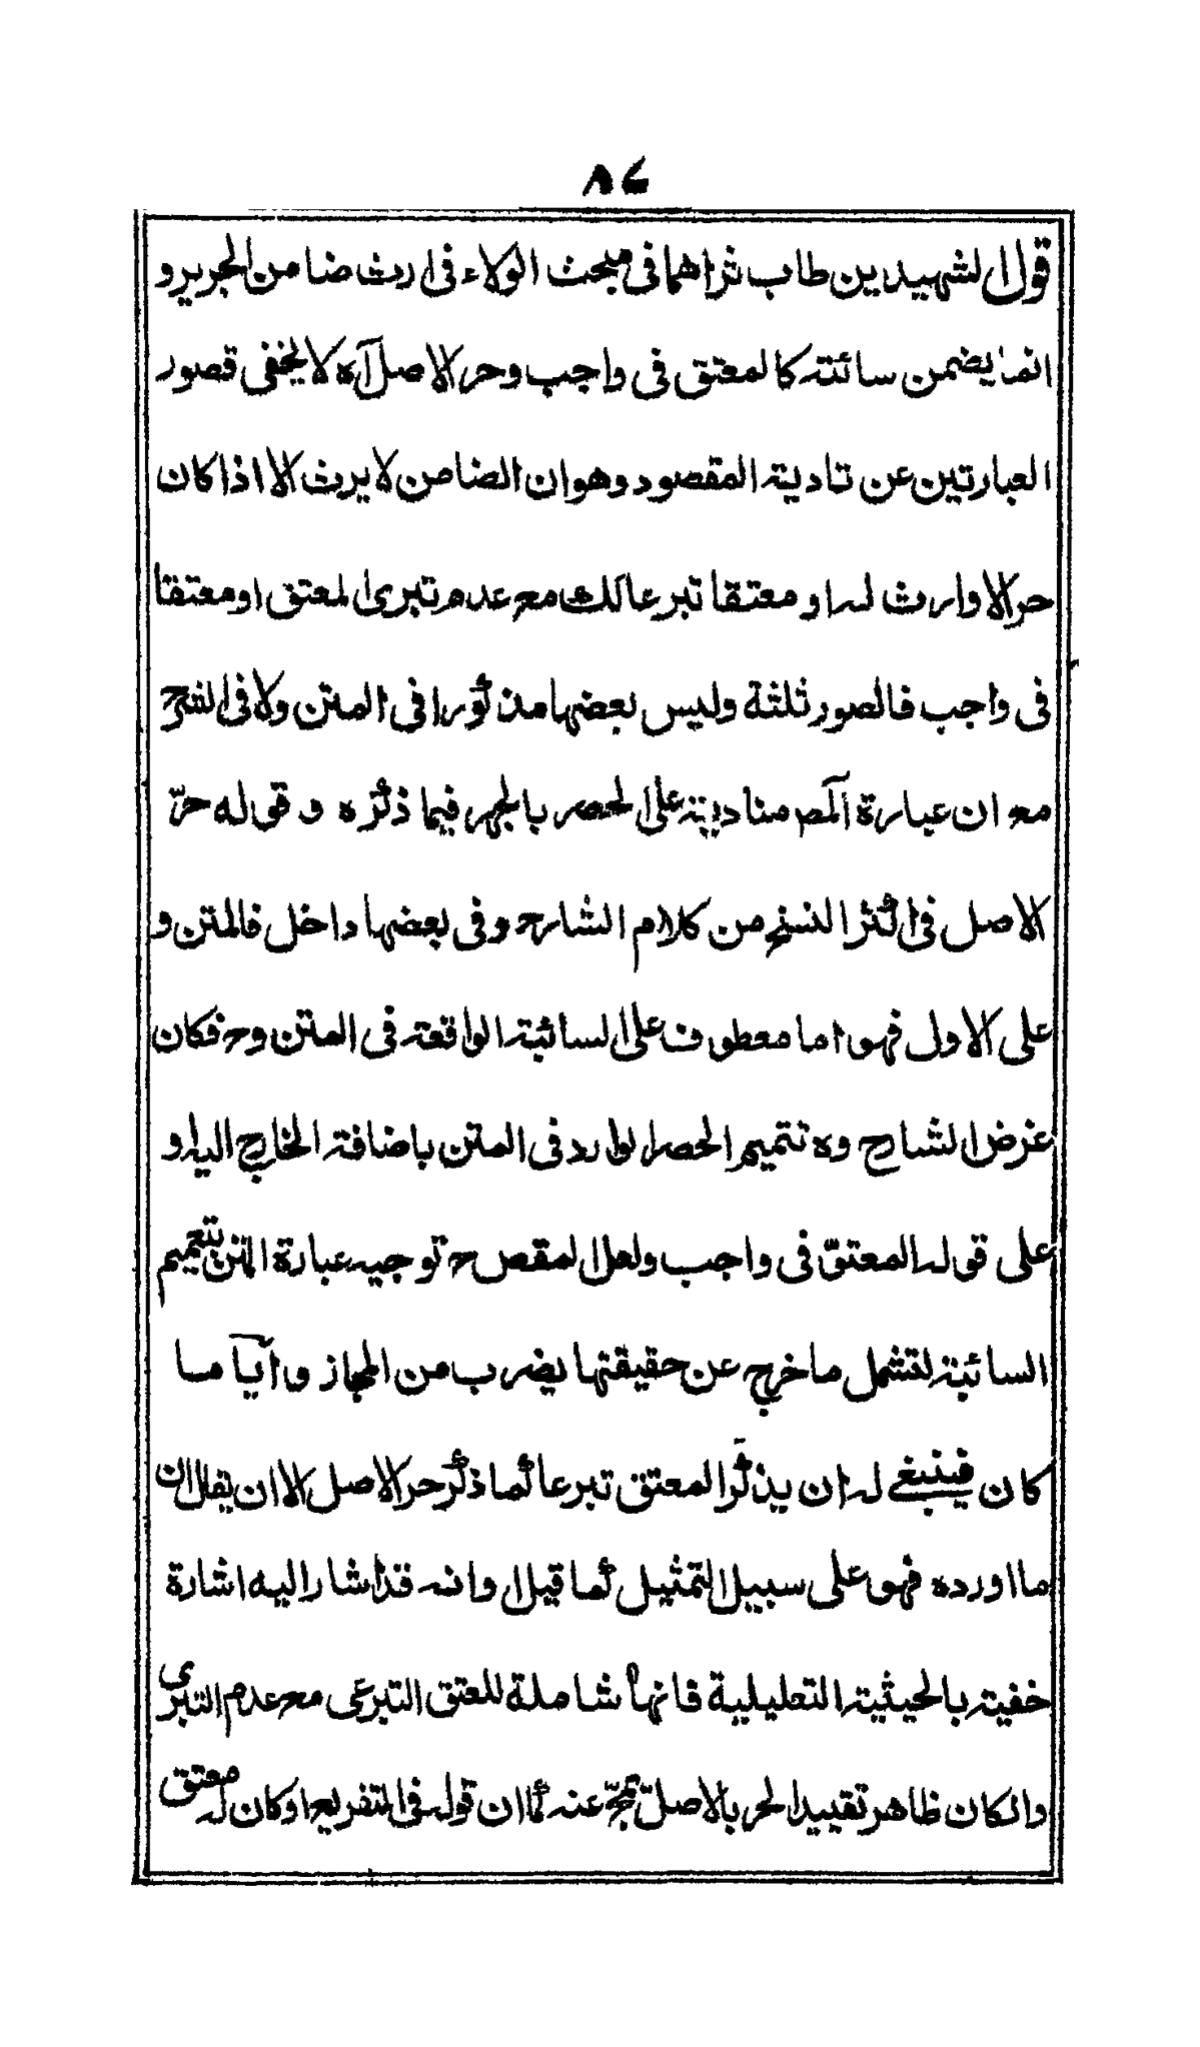 ٨٤
قول الشهيدين طاب ثراهما في مبحث الولاء في ارث ضامن الجرير و
انما يضمن سائبته كالمعتق في واجب وحر الاصل آه لا يخفى قصور
العبارتين عن تادية المقصود وهو ان الضامن لا يرث الا اذا كان
حرا لا وارث له او معتقا تبرعا لكنه مع عدم تبرى المعتق او معتقا
في واجب فالصور ثلثة وليس بعضها مذكورا في المتن ولا في الشرح
مع ان عبارة المص منادية على الحصر بالجهر فيما ذكره و قوله حرّ
الاصل في اكثر النسخ من كلام الشارح وفي بعضها داخل فالمتن و
على الاول فهو اما معطوف على السائبة الواقعة في المتن وح فكان
غرض الشارح ره تتميم الحصر الوارد في المتن باضافة الخارج اليه او
على قوله المعتق في واجب ولعل المقص ح توجيه عبارة المتن بتعميم
السائبة لتشمل ما خرج عن حقيقتها بضرب من المجاز و اياً ما
كان فينبغي له ان يذكر المعتق تبرعا كما ذكر حر الاصل الا ان يقال ان
ما اورده فهو على سبيل التمثيل كما قيل او انه قد اشار اليه اشارة
خفية بالحيثية التعليلية فانها شاملة للعتق التبرعى مع عدم التبرى
وانكان ظاهر تقييد الحر بالاصل عنه كما ان قوله في التفريع او كان له معتق